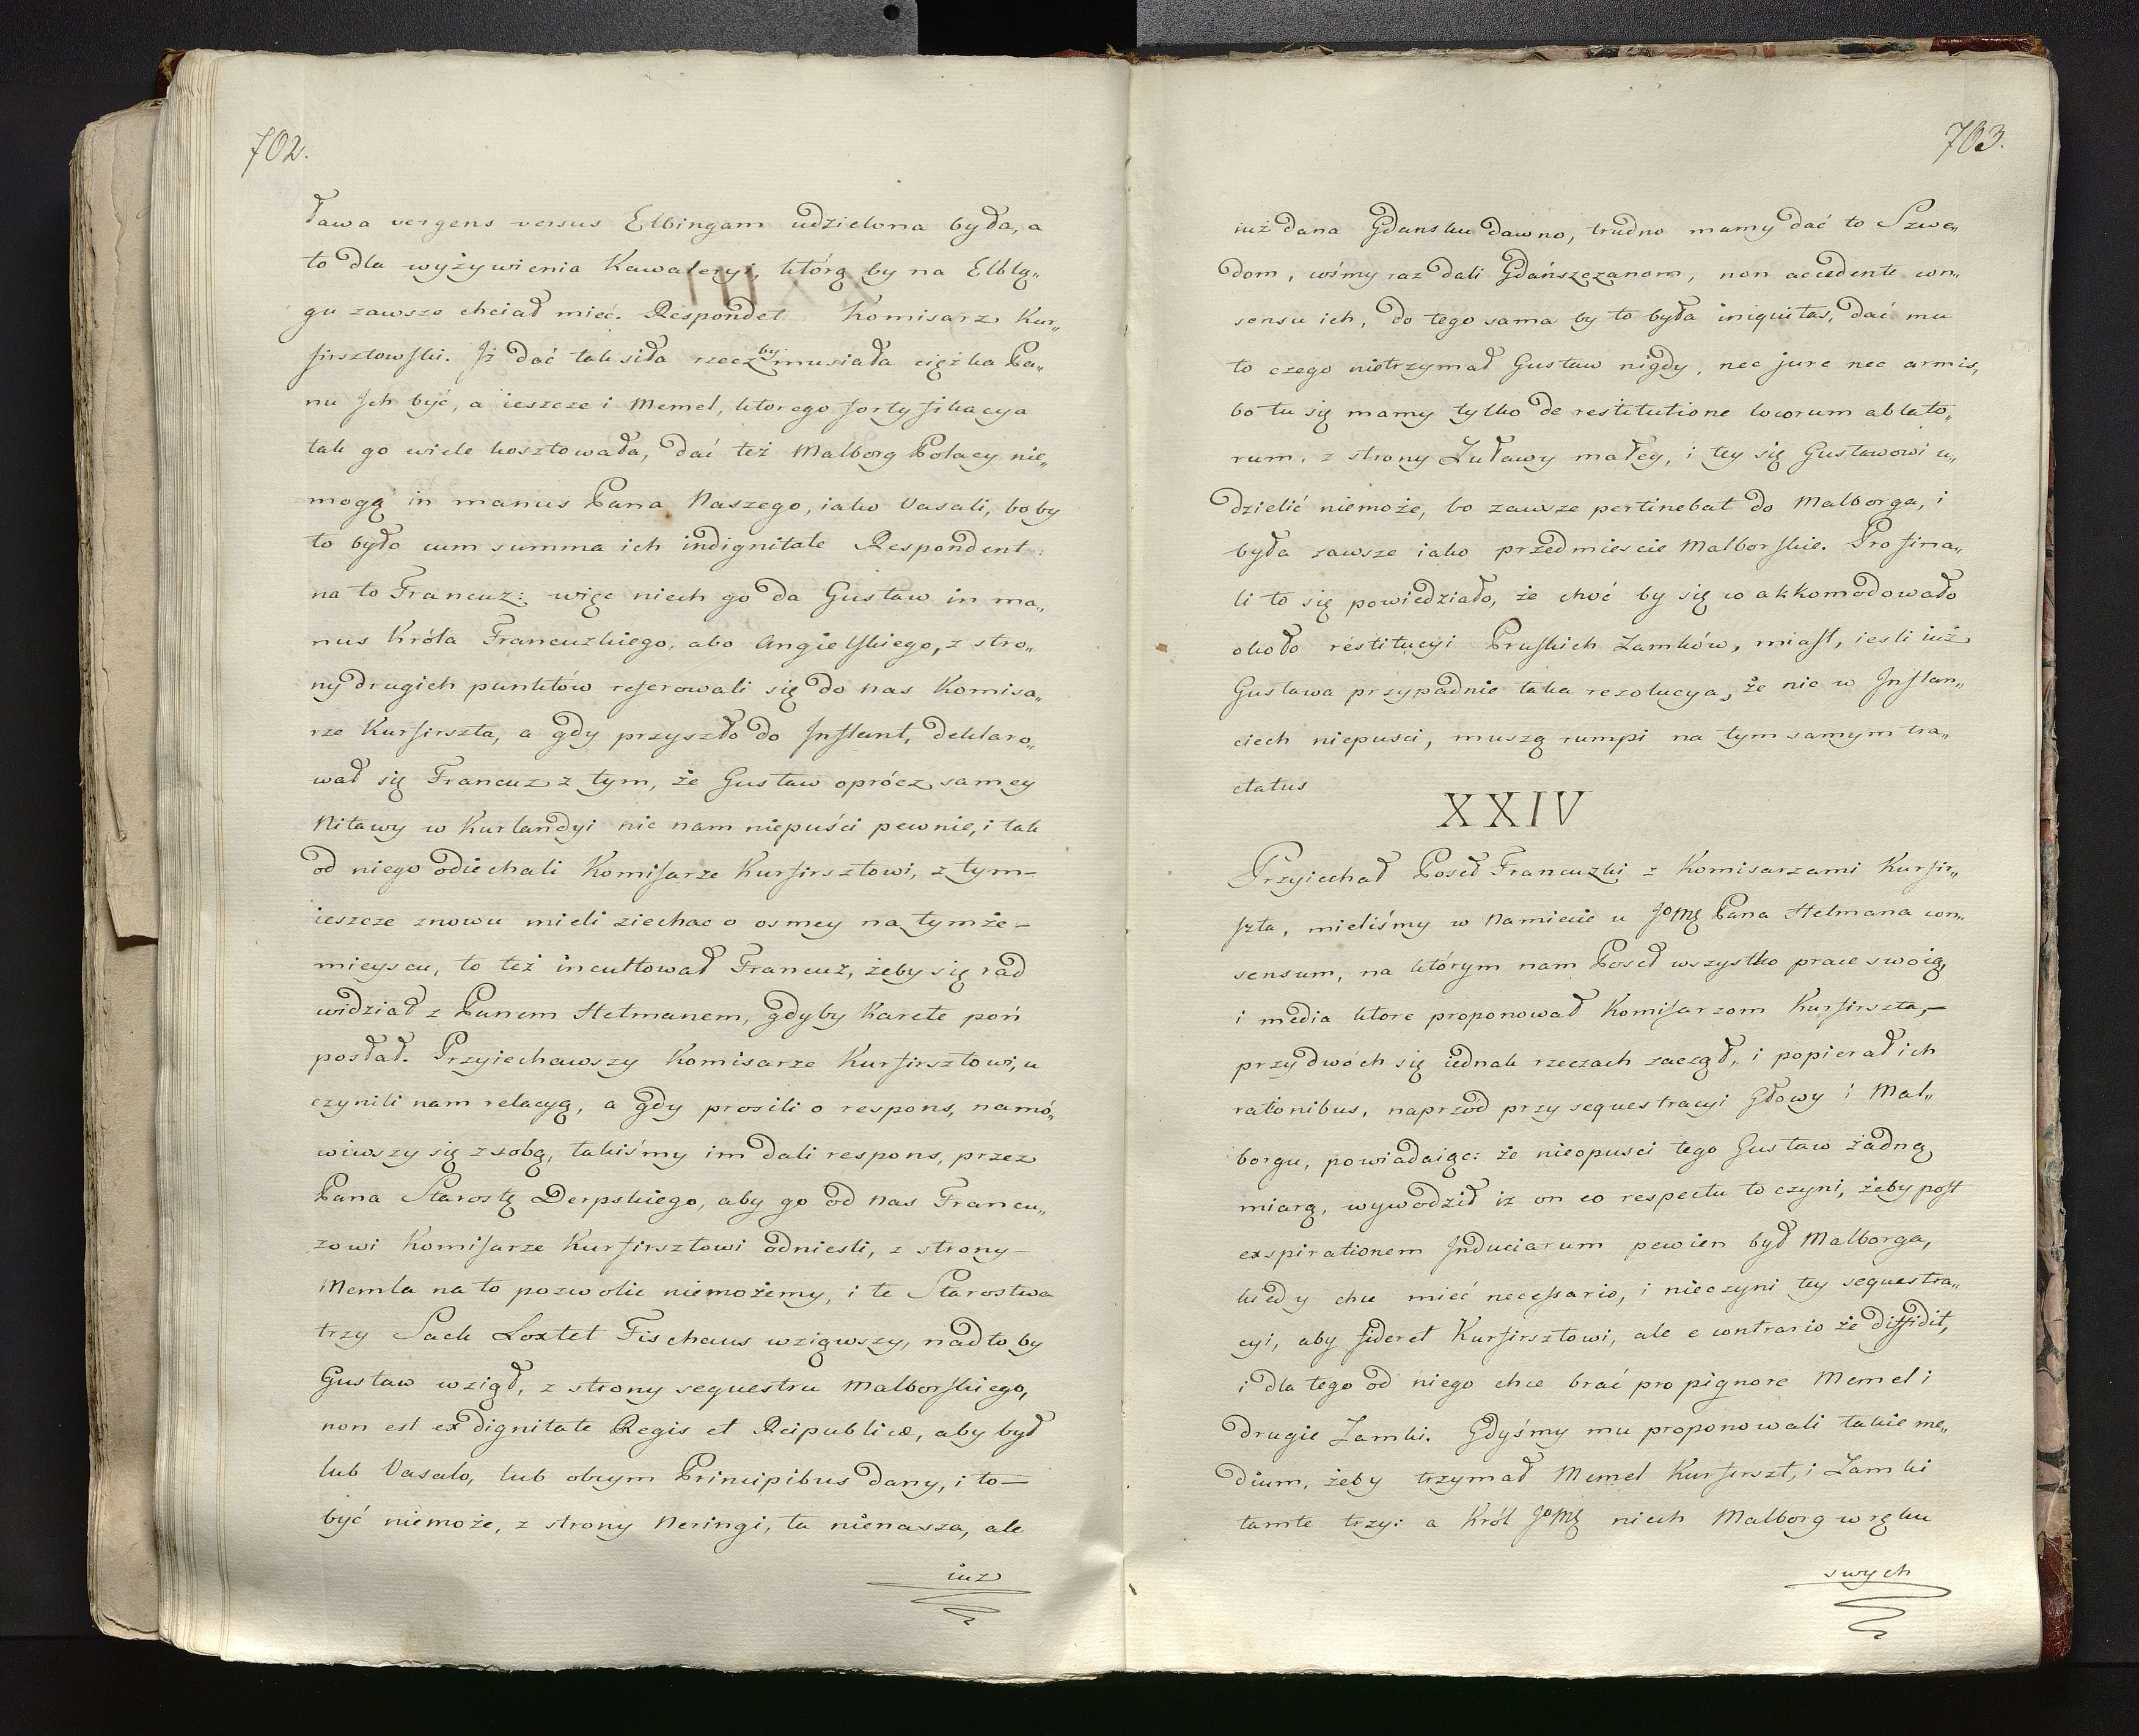 702.
ława vergens versus Elbingam udzielona była, a
to dla wyżywienia Kawaleryi, którą by na Elblą„
gu zawsze chciał mieć. Respondet Komisarz Kur„
firsztowski. Jż dać tak siła rzecz by musiała ciężka Pa„
nu Jch być, a ieszcze i Memel, ktorego fortyfikacya
tak go wiele kosztowała, dać też Malborg Polacy nie„
mogą in manus Pana Naszego, iako Vasali, bo by
to było cum summa ich indignitate Respondent:
na to Francuz: więc niech go da Gustaw in ma„
nus Króla Francuzkiego, abo Angielskiego, z stro„
ny drugich punktów referowali się do nas Komisa„
rze Kurfirszta, a gdy przyszło do Inflant, deklaro„
wał się Francuz z tym, że Gustaw oprócz samey
Mitawy w Kurlandyi nic nam niepuści pewnie, i tak
od niego odiechali Komisarze Kurfirsztowi, z tym-
ieszcze znowu mieli ziechac o osmey na tymże-
mieyscu, to też incultował Francuz, żeby się rad
widział z Panem Hetmanem, gdyby Karete poń
posłał. Przyiechawszy Komisarze Kurfirsztowi, u
czynili nam relacyą, a gdy prosili o respons, namó„
wiwszy się z sobą, takiśmy im dali respons, przez
Pana Starostę Derpskiego, aby go od nas Francu„
zowi Komisarze Kurfirsztowi odniesli, z strony-
Memla na to pozwolic niemożemy, i te Starostwa
trzy Sack Loxtet Fischaus wziąwszy, nadto by
Gustaw wziął, z strony sequestru Malborskiego,
non est ex dignitate Regis et Reipublicæ, aby był
lub Vasalo, lub obcym Principibus dany, i to-
być niemoże, z strony Neringi, ta nienasza, ale
iuz
703.
iuż dana Gdansku dawno, trudno mamy dać to Szwe„
dom, cośmy raz dali Gdańszczanom, non accedente con„
sensu ich, do tego sama by to była iniquitas, dać mu
to czego nietrzymał Gustaw nigdy, nec jure nec armis,
bo tu się mamy tylko de restitutione locorum ablato„
rum, z strony Żuławy małey, i tey się Gustawowi u„
dzielić niemoże, bo zawsze pertinebat do Malborga, i
była zawsze iako przedmiescie Malborskie. Pro fina„
li to się powiedziało, że choć by się co akkomodowało
około restitucyi Pruskich Zamków, miast, iesli iuż
Gustawa przypadnie taka rezolucya, że nic w Inflan„
ciech niepusci, muszą rumpi na tym samym tra„
ctatus
XXIV
Przyiechał Poseł Francuzki z Komisarzami Kurfir„
szta, mieliśmy w Namiecie u JoMę Pana Hetmana con„
sensum, na którym nam Poseł wszystko prace swoią,
i media ktore proponował Komisarzom Kurfirszta,-
przy dwóch się iednak rzeczach zaczął, i popierał ich
rationibus, naprzod przy sequestracyi Głowy i Mal„
borgu, powiadaiąc: że nieopusci tego Gustaw żadną
miarą, wywodził iz on eo respectu to czyni, żeby post
exspirationem Induciarum pewien był Malborga,
kiedy chce mieć necessario, i nieczyni tey sequestra„
cyi, aby fideret Kurfirsztowi, ale e contrario że diffidit,
i dla tego od niego chce brać pro pignore Memel i
drugie Zamki. Gdyśmy mu proponowali takie me„
dium, żeby trzymał Memel Kurfirszt, i Zamki
tamte trzy: a Król JoMę niech Malborg w ręku
swych